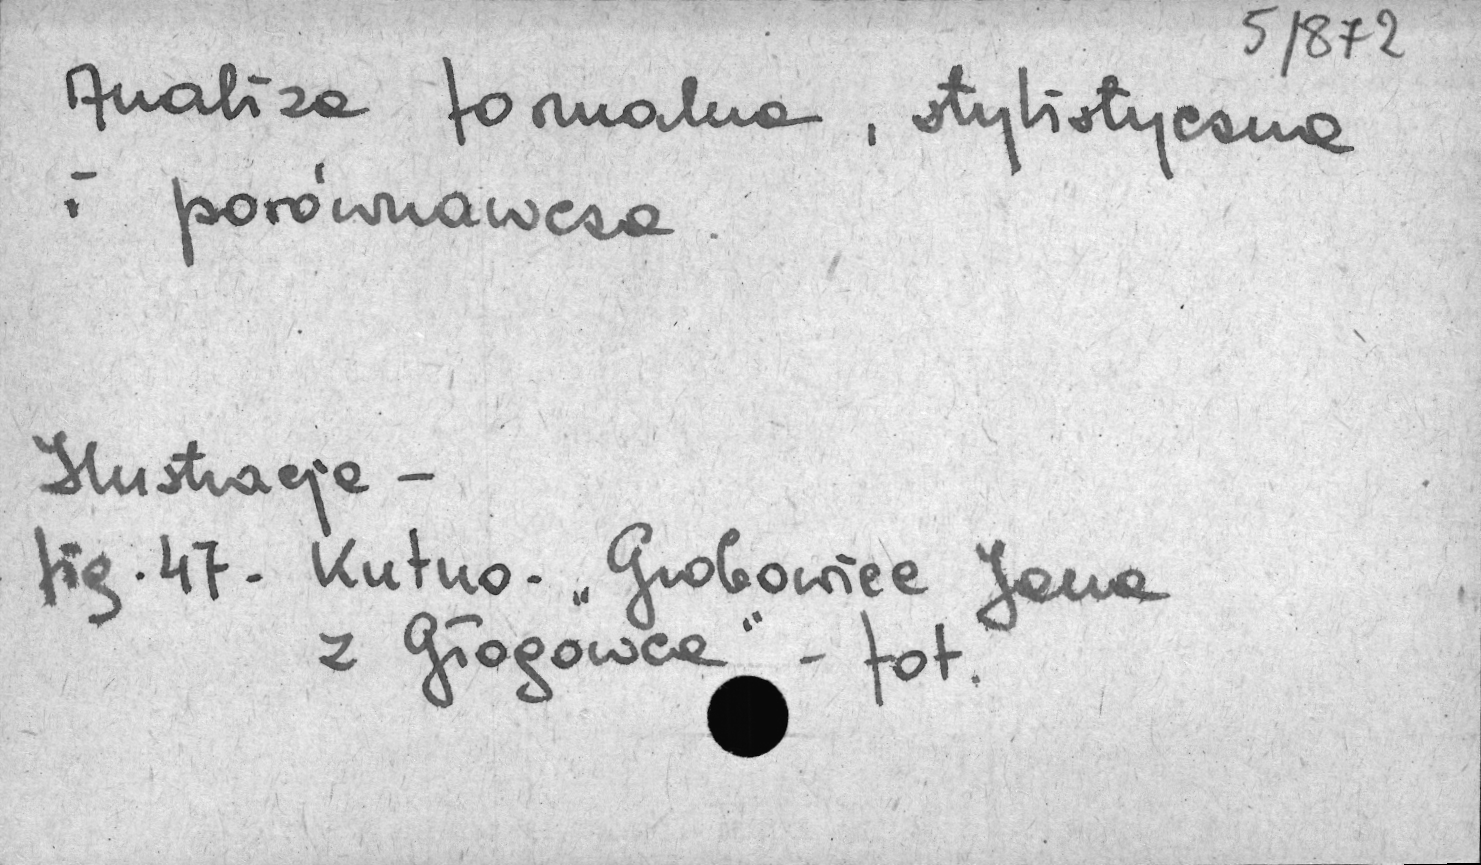 5/872
Analiza formalna, stylistyczna
i porównawcza.
Ilustracje –
fig. 47. Kutno. „Grobowiec Jana
z Głogówca" – fot.